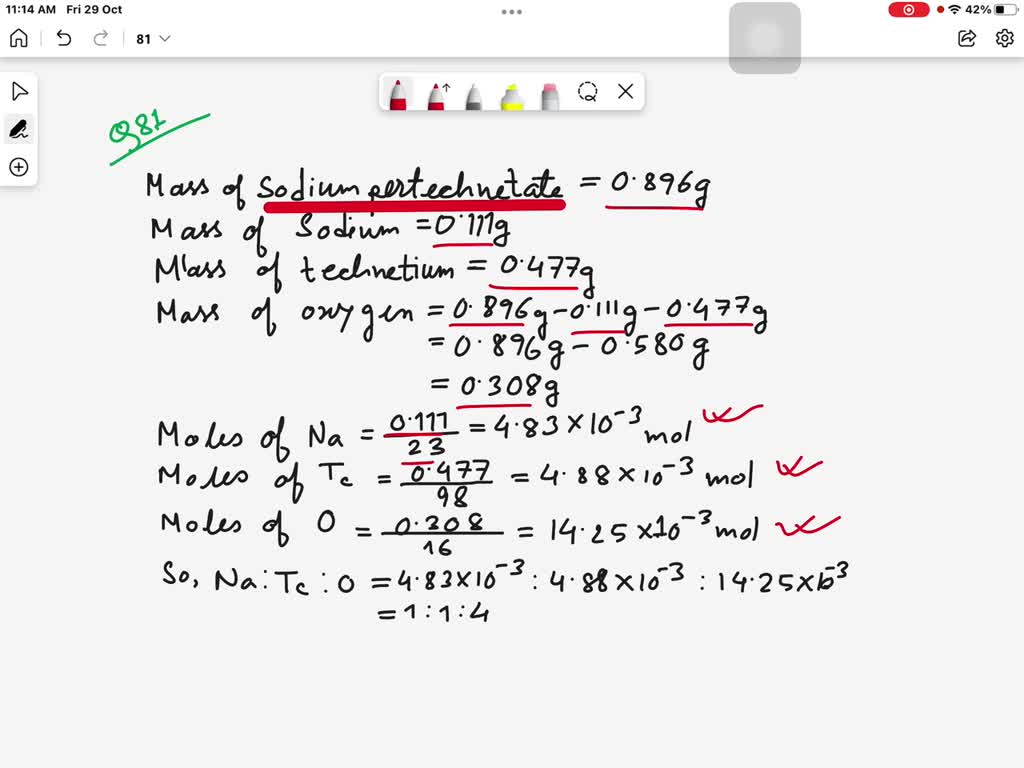 11:14 AM Fri 29 Oct
42%
81
Q81
Mass of Sodium pertechnetate = 0.896g
Mass of Sodium = 0.111g
Mass of technetium = 0.477g
Mass of oxygen = 0.896g - 0.111g - 0.477g
= 0.896g - 0.580g
= 0.308g
Moles of Na = 0.111/23 = 4.83 × 10⁻³ mol
Moles of Tc = 0.477/98 = 4.88 × 10⁻³ mol
Moles of O = 0.308/16 = 14.25 × 10⁻³ mol
So, Na : Tc : O = 4.83 × 10⁻³ : 4.88 × 10⁻³ : 14.25 × 10⁻³
= 1 : 1 : 4